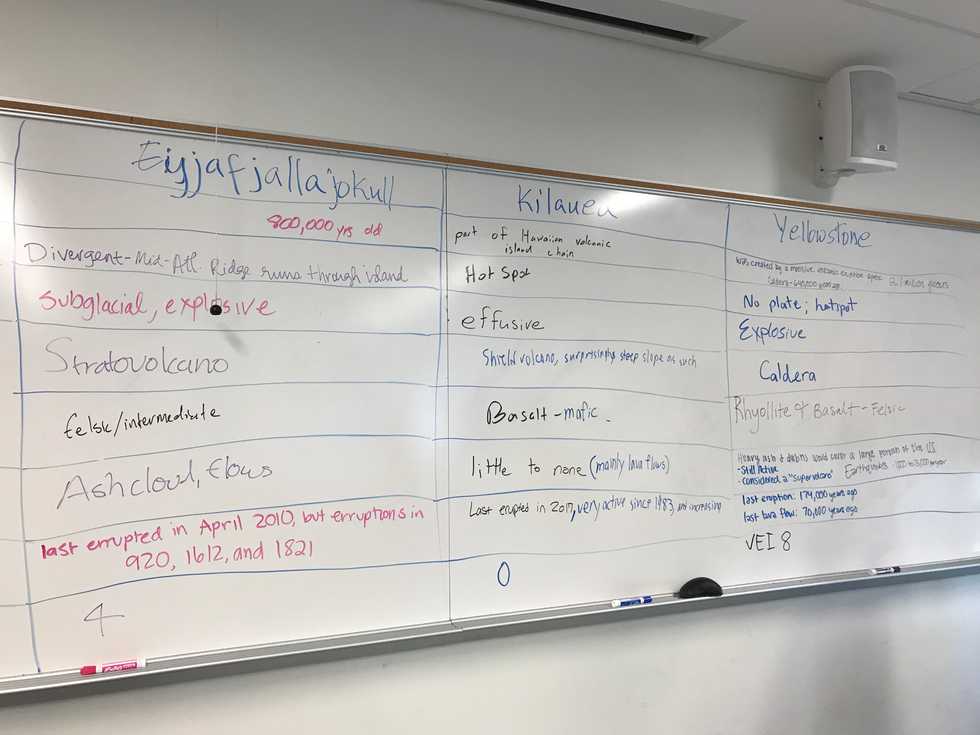 Eiyjafjalla'jokull
800,000 yrs old
Divergent-Mid-Atl. Ridge runs through island
Subglacial, explosive
Stratovolcano
felsic/intermediate
Ash cloud, flows
last errupted in April 2010, but erruptions in
920, 1612, and 1821
4
Kilauea
part of Hawaiian volcanic
island chain
Hot Spot
effusive
Shield volcano, surprisingly steep slope as such
Basalt - mafic
little to none (mainly lava flows)
Last erupted in 2017, very active since 1983, and increasing
0
Yellowstone
was created by a massive volcanic eruption 2.1 million years
No plate; hotspot
Explosive
Caldera
Rhyollite & Basalt - Felsic
Heavy ash & debris would cover a large portion of the US
- Still Active
- considered a "supervolcano" Earthquakes
last eruption: 174,000 years ago
last lava flow: 70,000 years ago
VEI 8